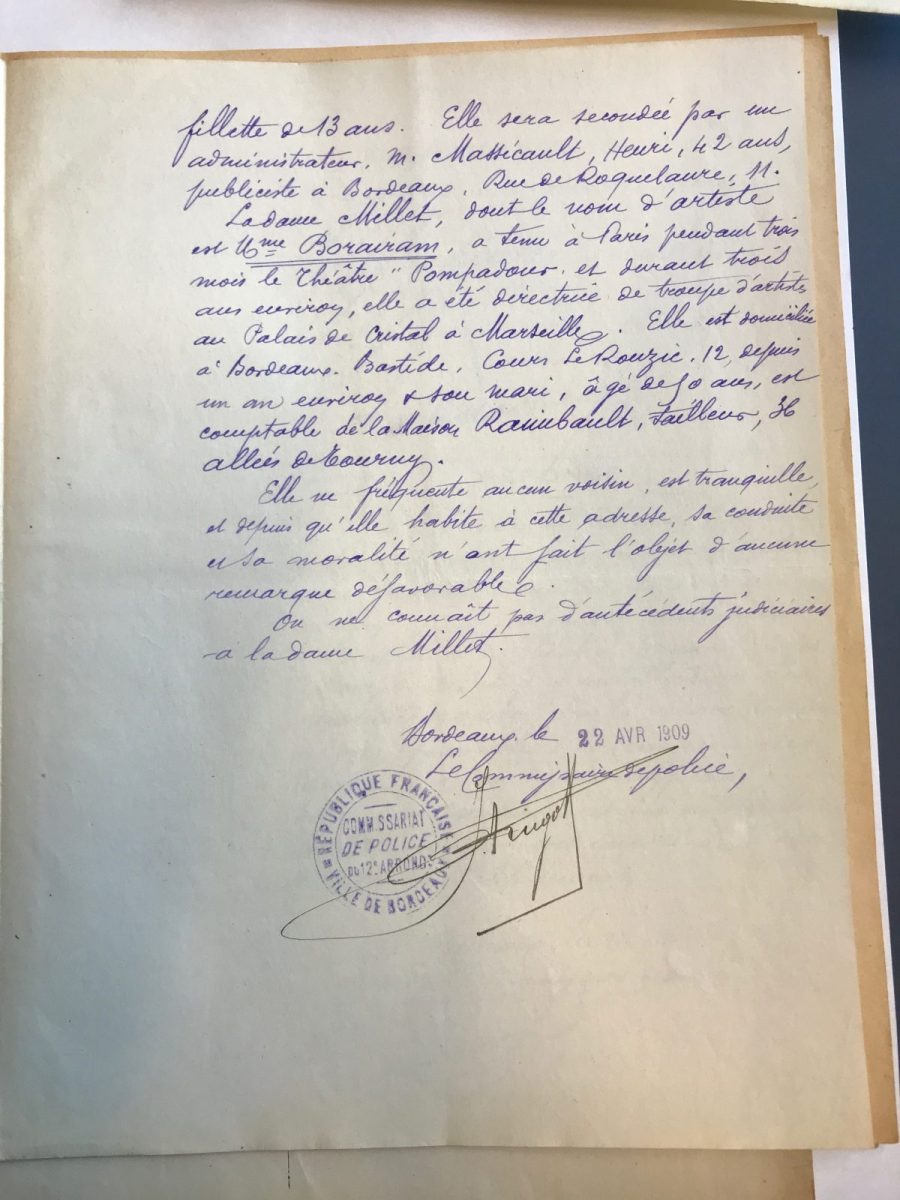 fillette de 13 ans. Elle sera secondée par un
administrateur, M. Massicault, Henri, 42 ans,
publiciste à Bordeaux, Rue de Roquelaure, 11.
La dame Millet, dont le nom d'artiste
est Mme Borairam, a tenu à Paris pendant trois
mois le Théâtre "Pompadour, et durant trois
ans environ, elle a été directrice de troupe d'artistes
au Palais de Cristal à Marseille. Elle est domiciliée
à Bordeaux-Bastide, Cours Le Rouzic, 12, depuis
un an environ & son mari, âgé de 50 ans, est
comptable de la Maison Raimbault, tailleur, 36
allées de Tourny.
Elle ne fréquente aucun voisin, est tranquille,
et depuis qu'elle habite à cette adresse, sa conduite
et sa moralité n'ont fait l'objet d'aucune
remarque défavorable.
On ne connaît pas d'antécédents judiciaires
à la dame Millet.
Bordeaux, le 22 AVR 1909
Le Commissaire de police,
RÉPUBLIQUE FRANÇAISE
COMMISSARIAT
DE POLICE
DU 12e ARRONDt
VILLE DE BORDEAUX